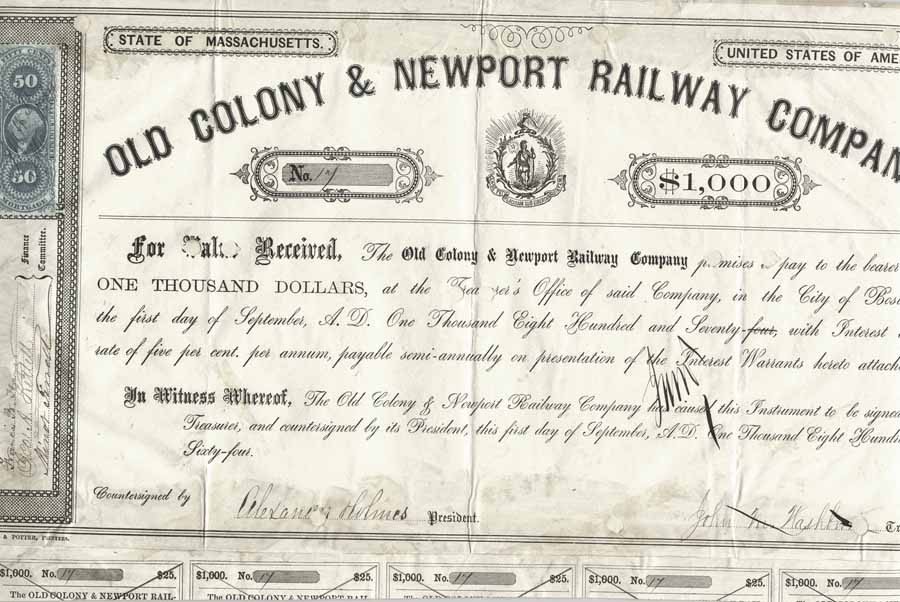 STATE OF MASSACHUSETTS.
UNITED STATES OF AME
OLD COLONY & NEWPORT RAILWAY COMPAN
50
50
No. 17
$1,000
For Value Received, The Old Colony & Newport Railway Company promises to pay to the bearer
ONE THOUSAND DOLLARS, at the Treasurer's Office of said Company, in the City of Bos
the first day of September, A. D. One Thousand Eight Hundred and Seventy-four, with Interest
rate of five per cent. per annum, payable semi-annually on presentation of the Interest Warrants hereto attach
In Witness Whereof, The Old Colony & Newport Railway Company has caused this Instrument to be signed
Treasurer, and countersigned by its President, this first day of September, A.D. One Thousand Eight Hundr
Sixty-four.
Countersigned by
Alexander Holmes President.
John M. Washburn Tr
Finance
Committee.
& POTTER, PRINTERS.
$1,000. No. 17 $25.
The OLD COLONY & NEWPORT RAIL-
$1,000. No. 17 $25.
The OLD COLONY & NEWPORT RAIL-
$1,000. No. 17 $25.
The OLD COLONY & NEWPORT RAIL-
$1,000. No. 17 $25.
The OLD COLONY & NEWPORT RAIL-
$1,000. No. 17
The OLD COLONY & NEWPORT RAIL-